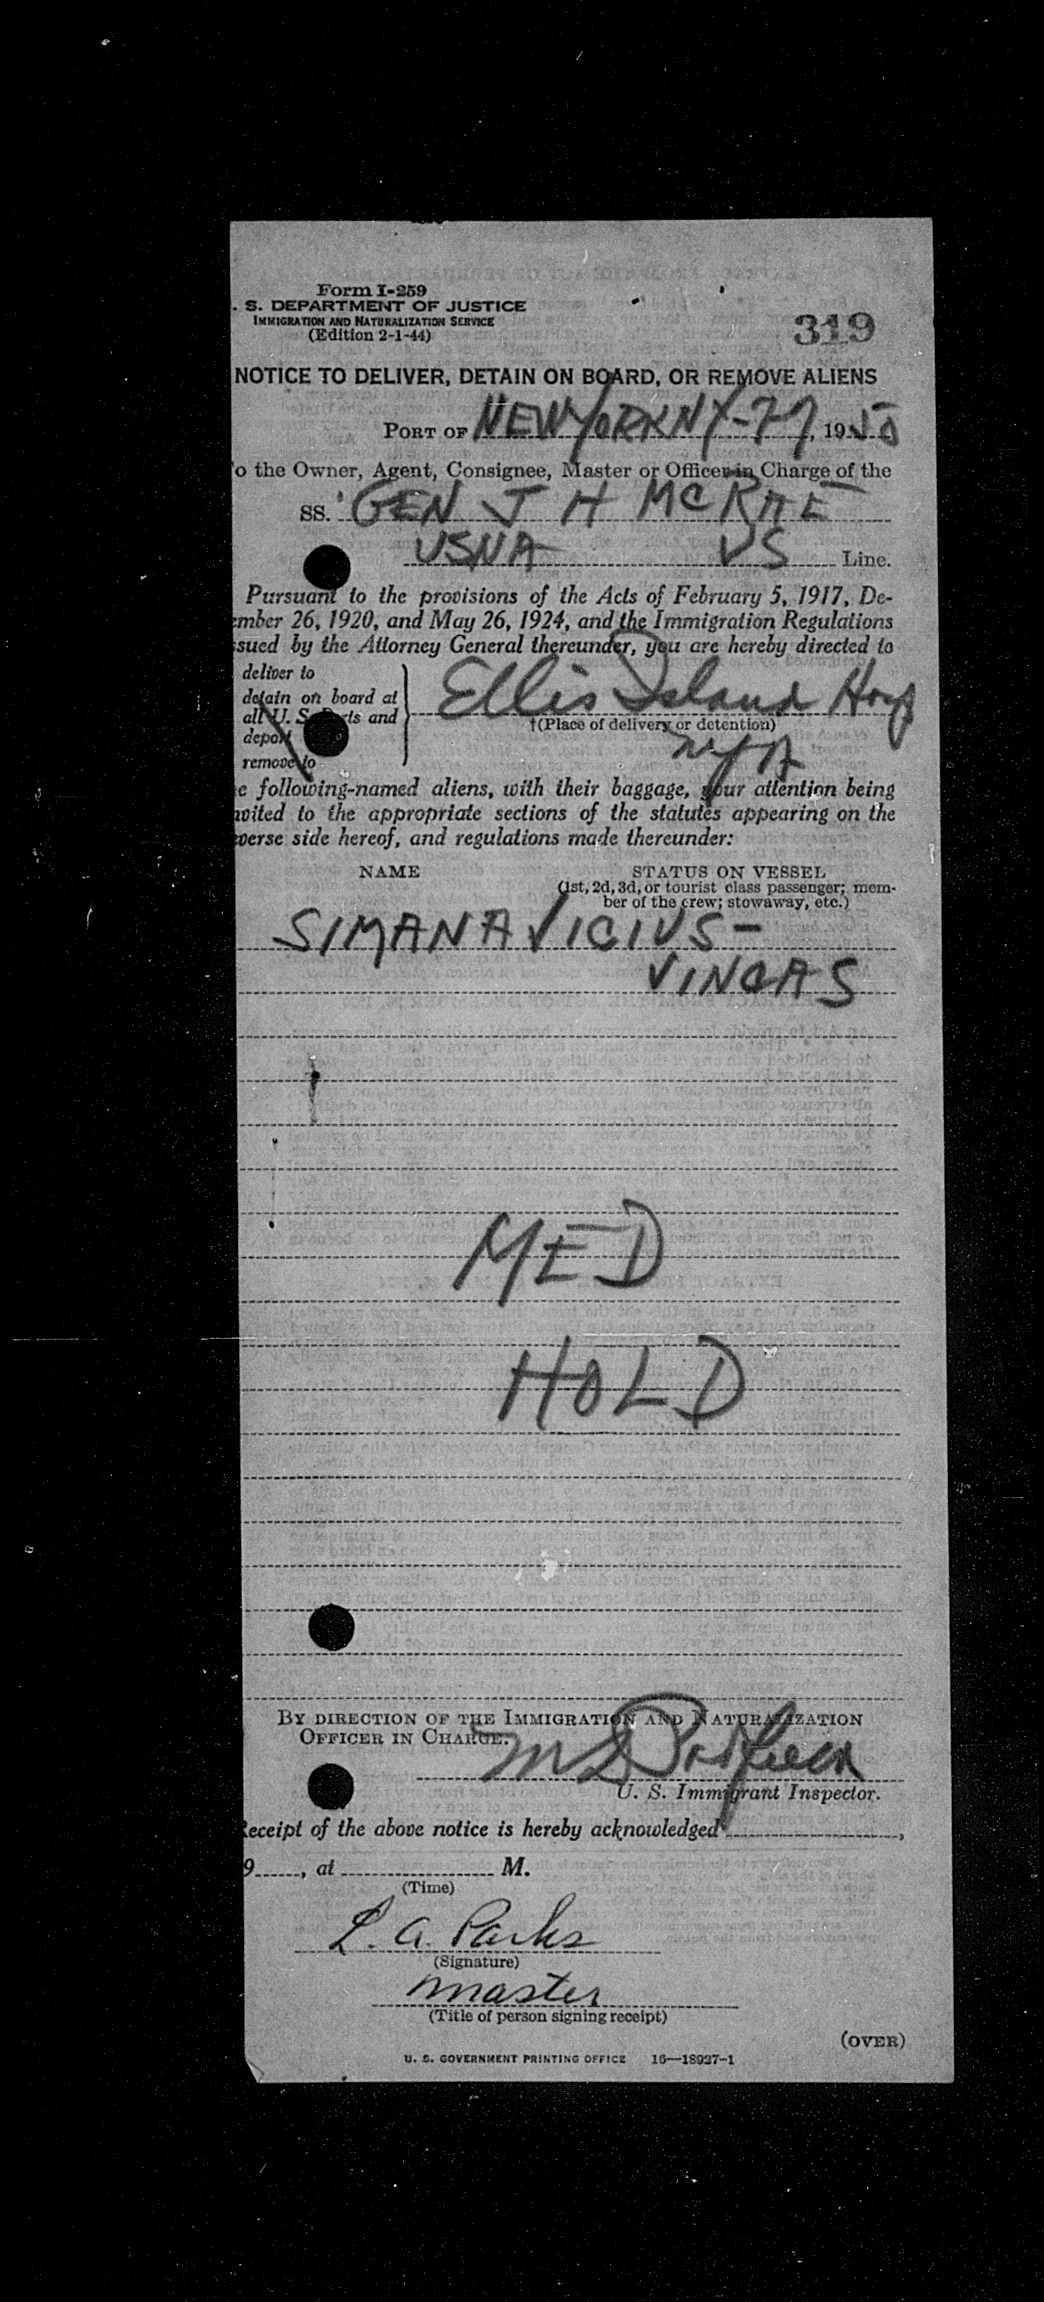 Form I-259
. S. DEPARTMENT OF JUSTICE
IMMIGRATION AND NATURALIZATION SERVICE
(Edition 2-1-44)
319
NOTICE TO DELIVER, DETAIN ON BOARD, OR REMOVE ALIENS
PORT OF NEW YORK NY - 7-7, 1950
o the Owner, Agent, Consignee, Master or Officer in Charge of the
SS. GEN J H MCRAE
USNA US Line.
Pursuant to the provisions of the Acts of February 5, 1917, De-
mber 26, 1920, and May 26, 1924, and the Immigration Regulations
sued by the Attorney General thereunder, you are hereby directed to
deliver to
detain on board at
all U. S. Ports and
deport
remove to
Ellis Island Hosp
†(Place of delivery or detention)
NYA
e following-named aliens, with their baggage, your attention being
vited to the appropriate sections of the statutes appearing on the
verse side hereof, and regulations made thereunder:
NAME STATUS ON VESSEL
(1st, 2d, 3d, or tourist class passenger; mem-
ber of the crew; stowaway, etc.)
SIMANAVICIUS -
VINCAS
MED
HOLD
BY DIRECTION OF THE IMMIGRATION AND NATURALIZATION
OFFICER IN CHARGE.
U. S. Immigrant Inspector.
Receipt of the above notice is hereby acknowledged ,
9 , at M.
(Time)
L. A. Parks
(Signature)
master
(Title of person signing receipt)
(OVER)
U. S. GOVERNMENT PRINTING OFFICE 16—18927-1